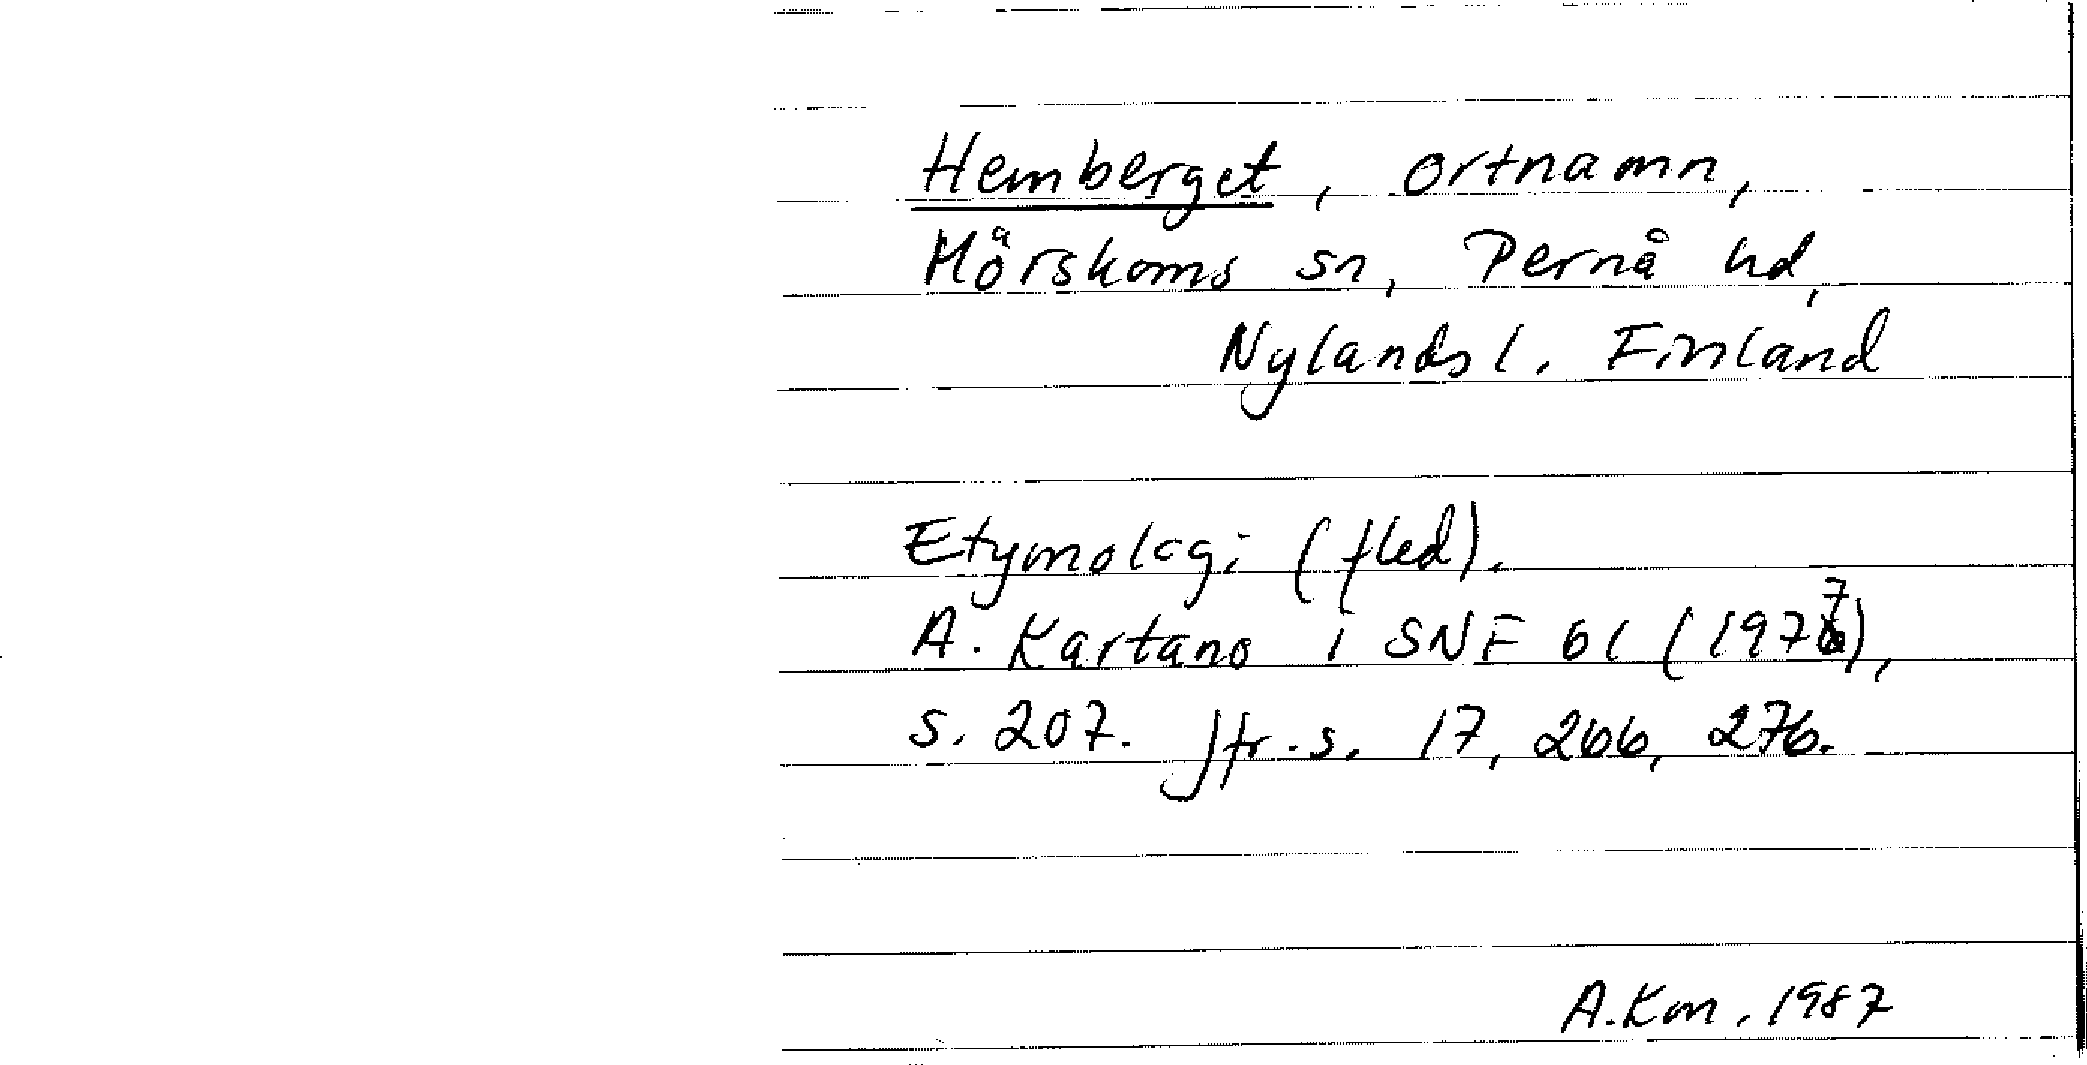 Hemberget, ortnamn,
Mörskoms sn, Pernå hd,
Nylands l. Finland
Etymologi (fled).
A. Kartano i SNF 61 (1977),
s. 207. Jfr. s. 17, 266, 276.
A.Km. 1987